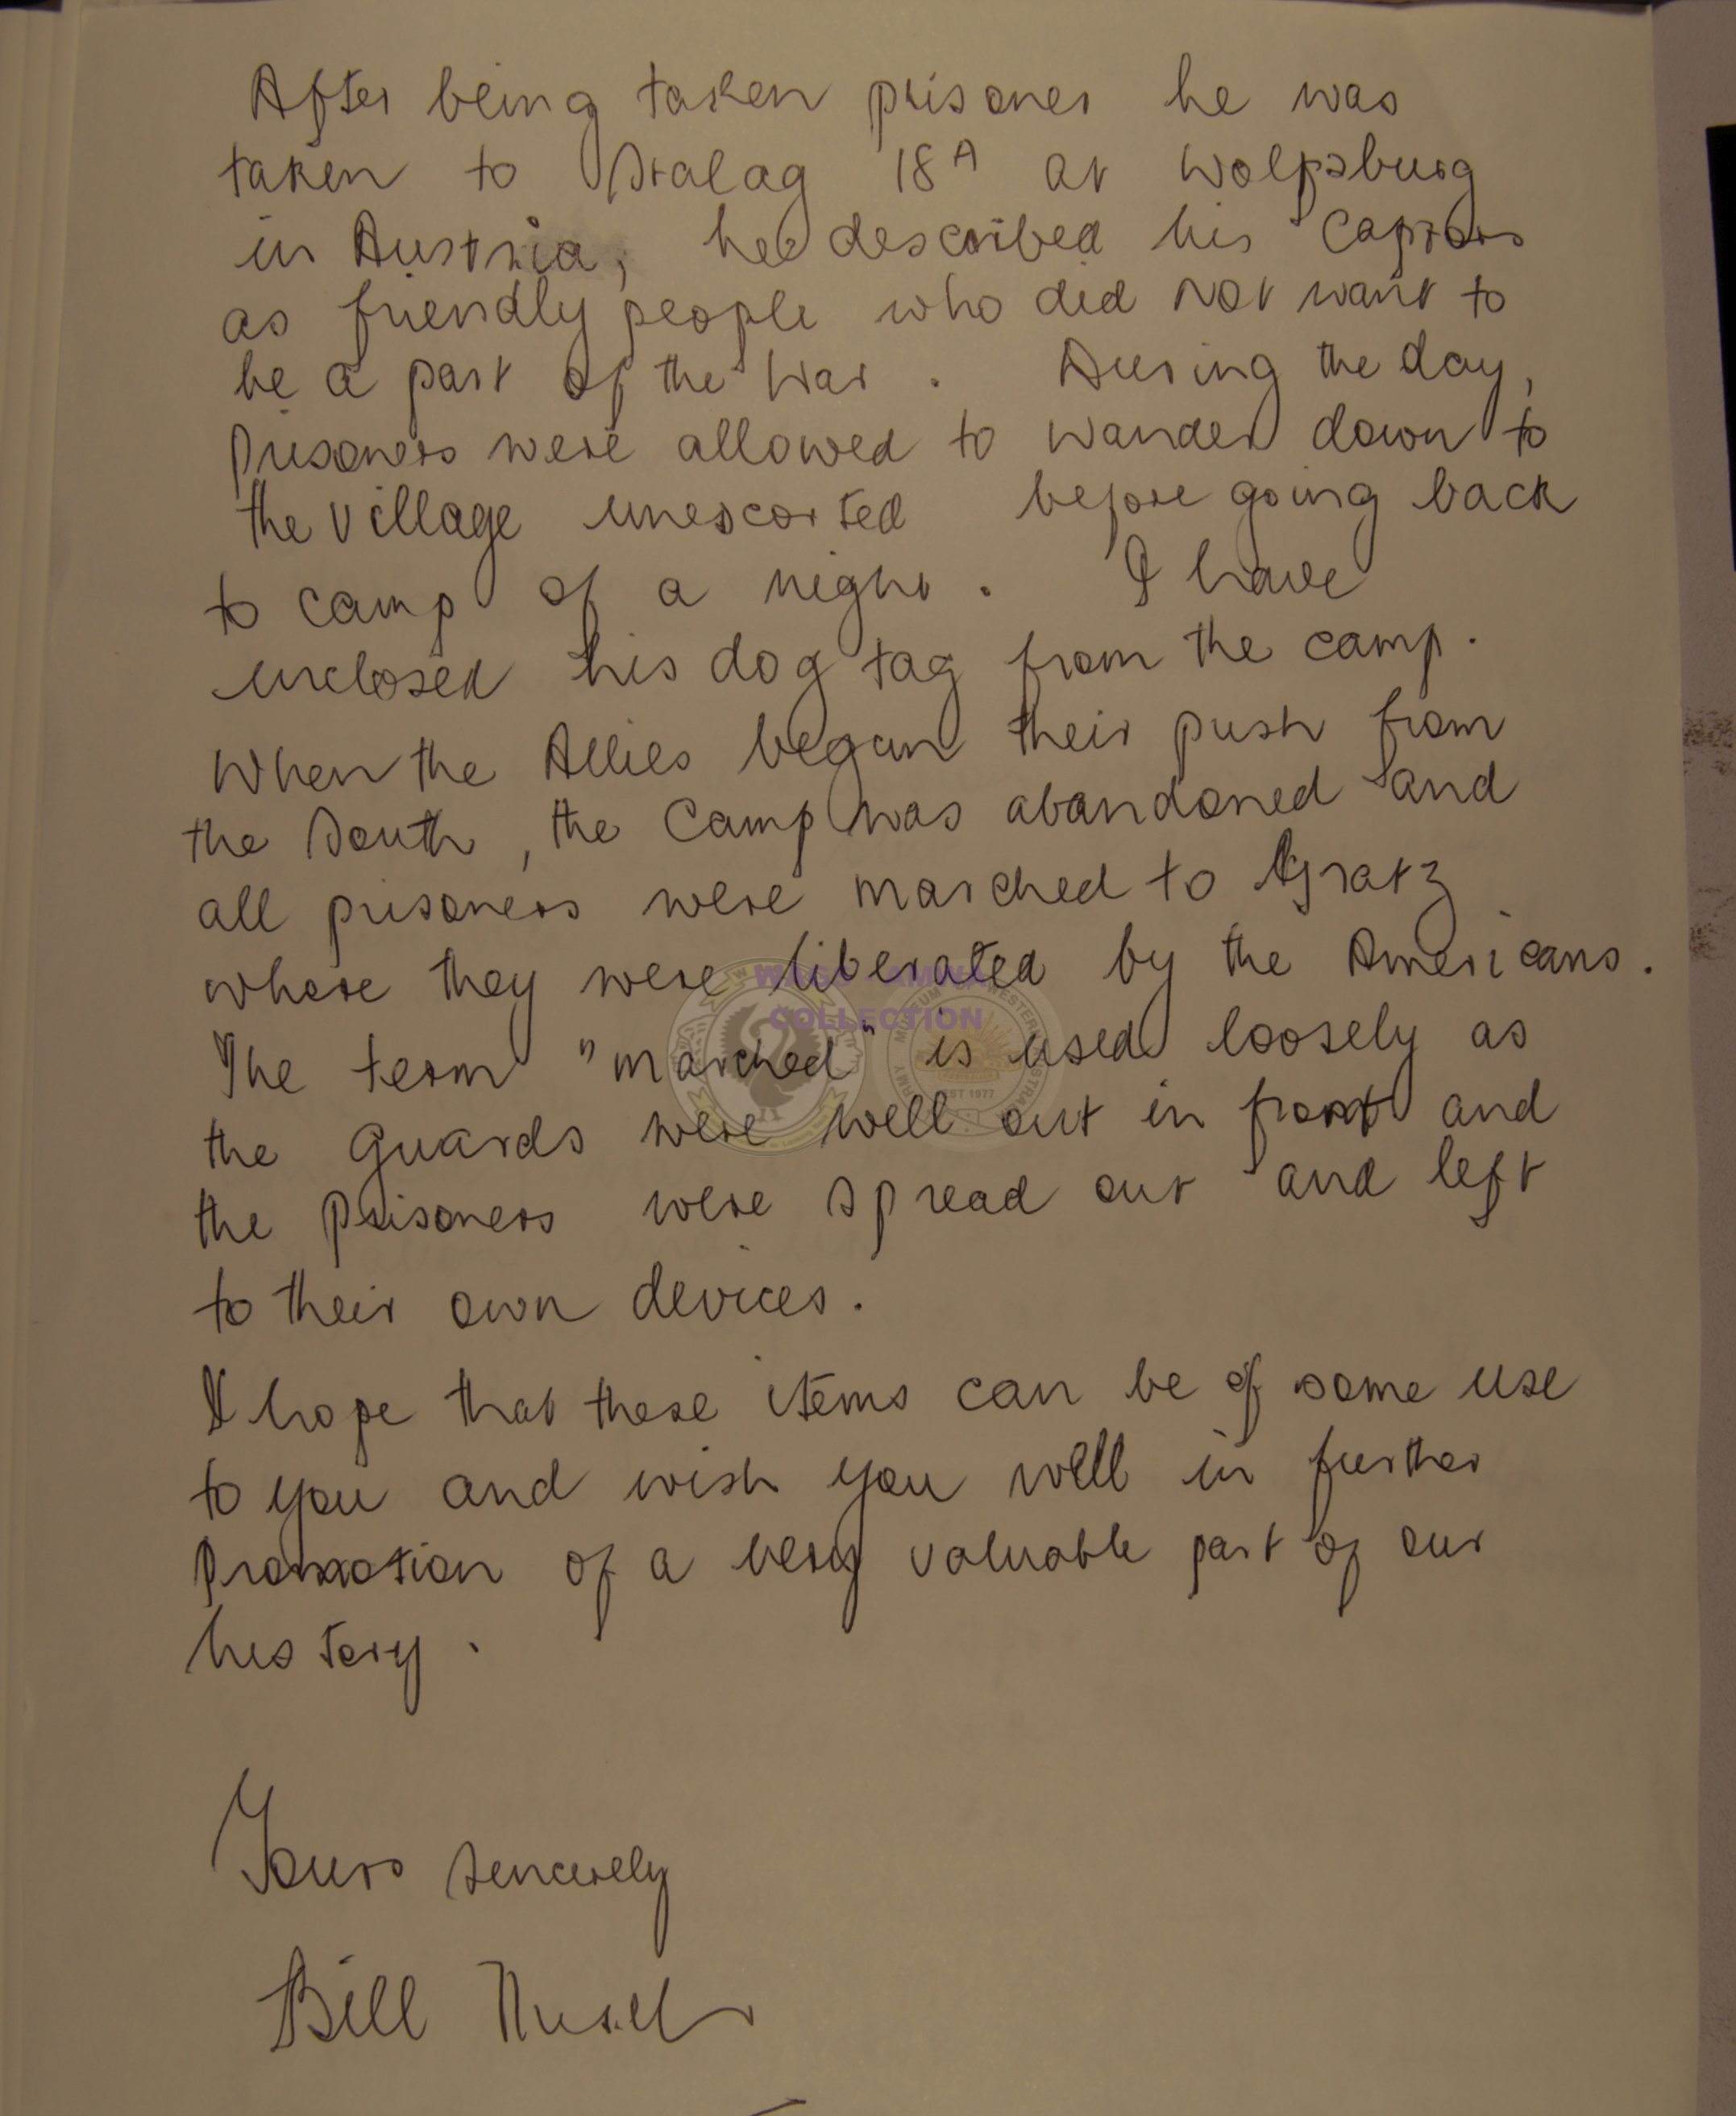 After being taken prisoner he was
taken to Stalag 18A at Wolfsburg
in Austria, he described his captors
as friendly people who did not want to
be a part of the War. During the day,
prisoners were allowed to wander down to
the village unescorted before going back
to camp of a night. I have
inclosed his dog tag from the camp.
When the Allies began their push from
the South, the Camp was abandoned and
all prisoners were marched to Gratz
where they were liberated by the Americans.
WASO - AMWA
COLLECTION
The term "marched" is used loosely as
EST 1977
the guards were well out in front and
the prisoners were spread out and left
to their own devices.
I hope that these items can be of some use
to you and wish you well in further
promotion of a very valuable part of our
history.
Yours sincerely
Bill